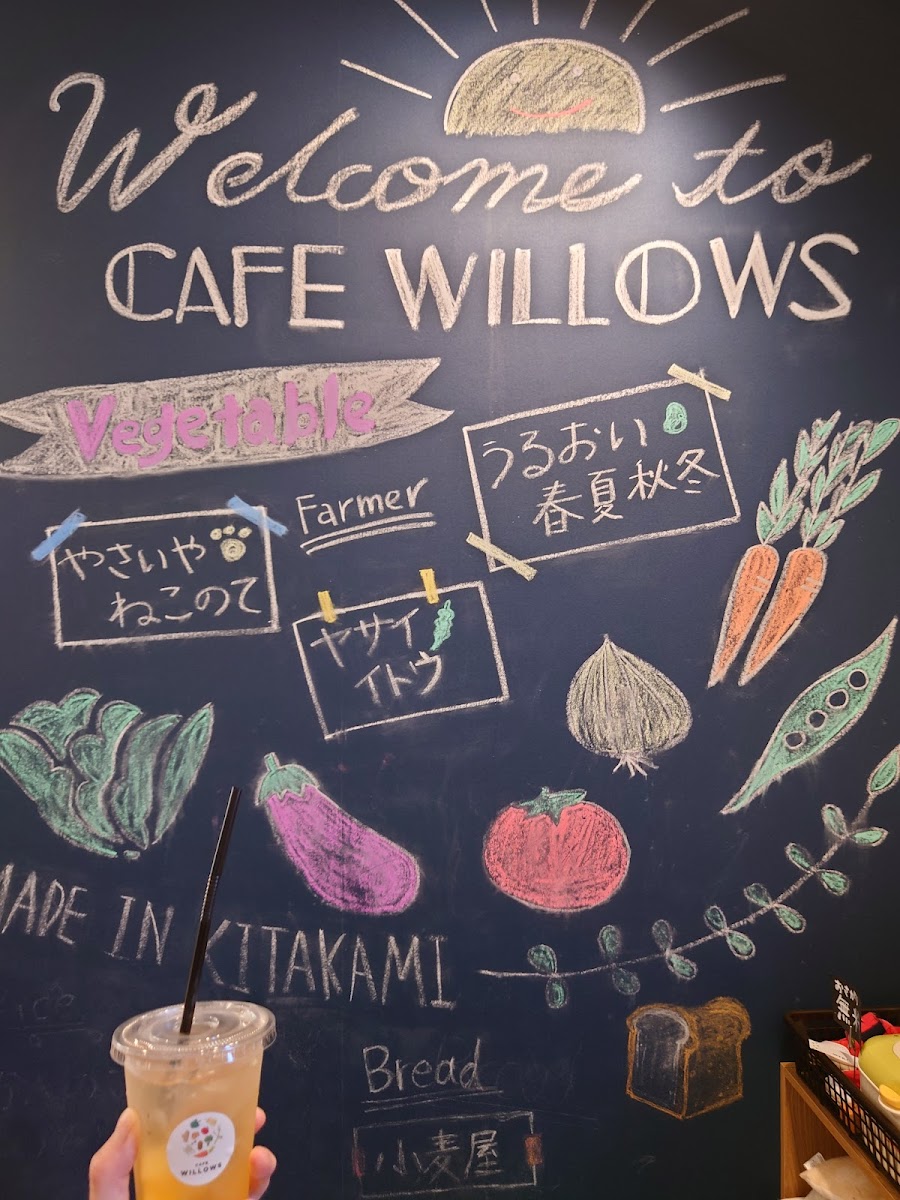 Welcome to
CAFE WILLOWS
Vegetable
Farmer
うるおい
春夏秋冬
やさいや
ねこのて
ヤサイ
イトウ
MADE IN KITAKAMI
Bread
小麦屋
CAFE
WILLOWS